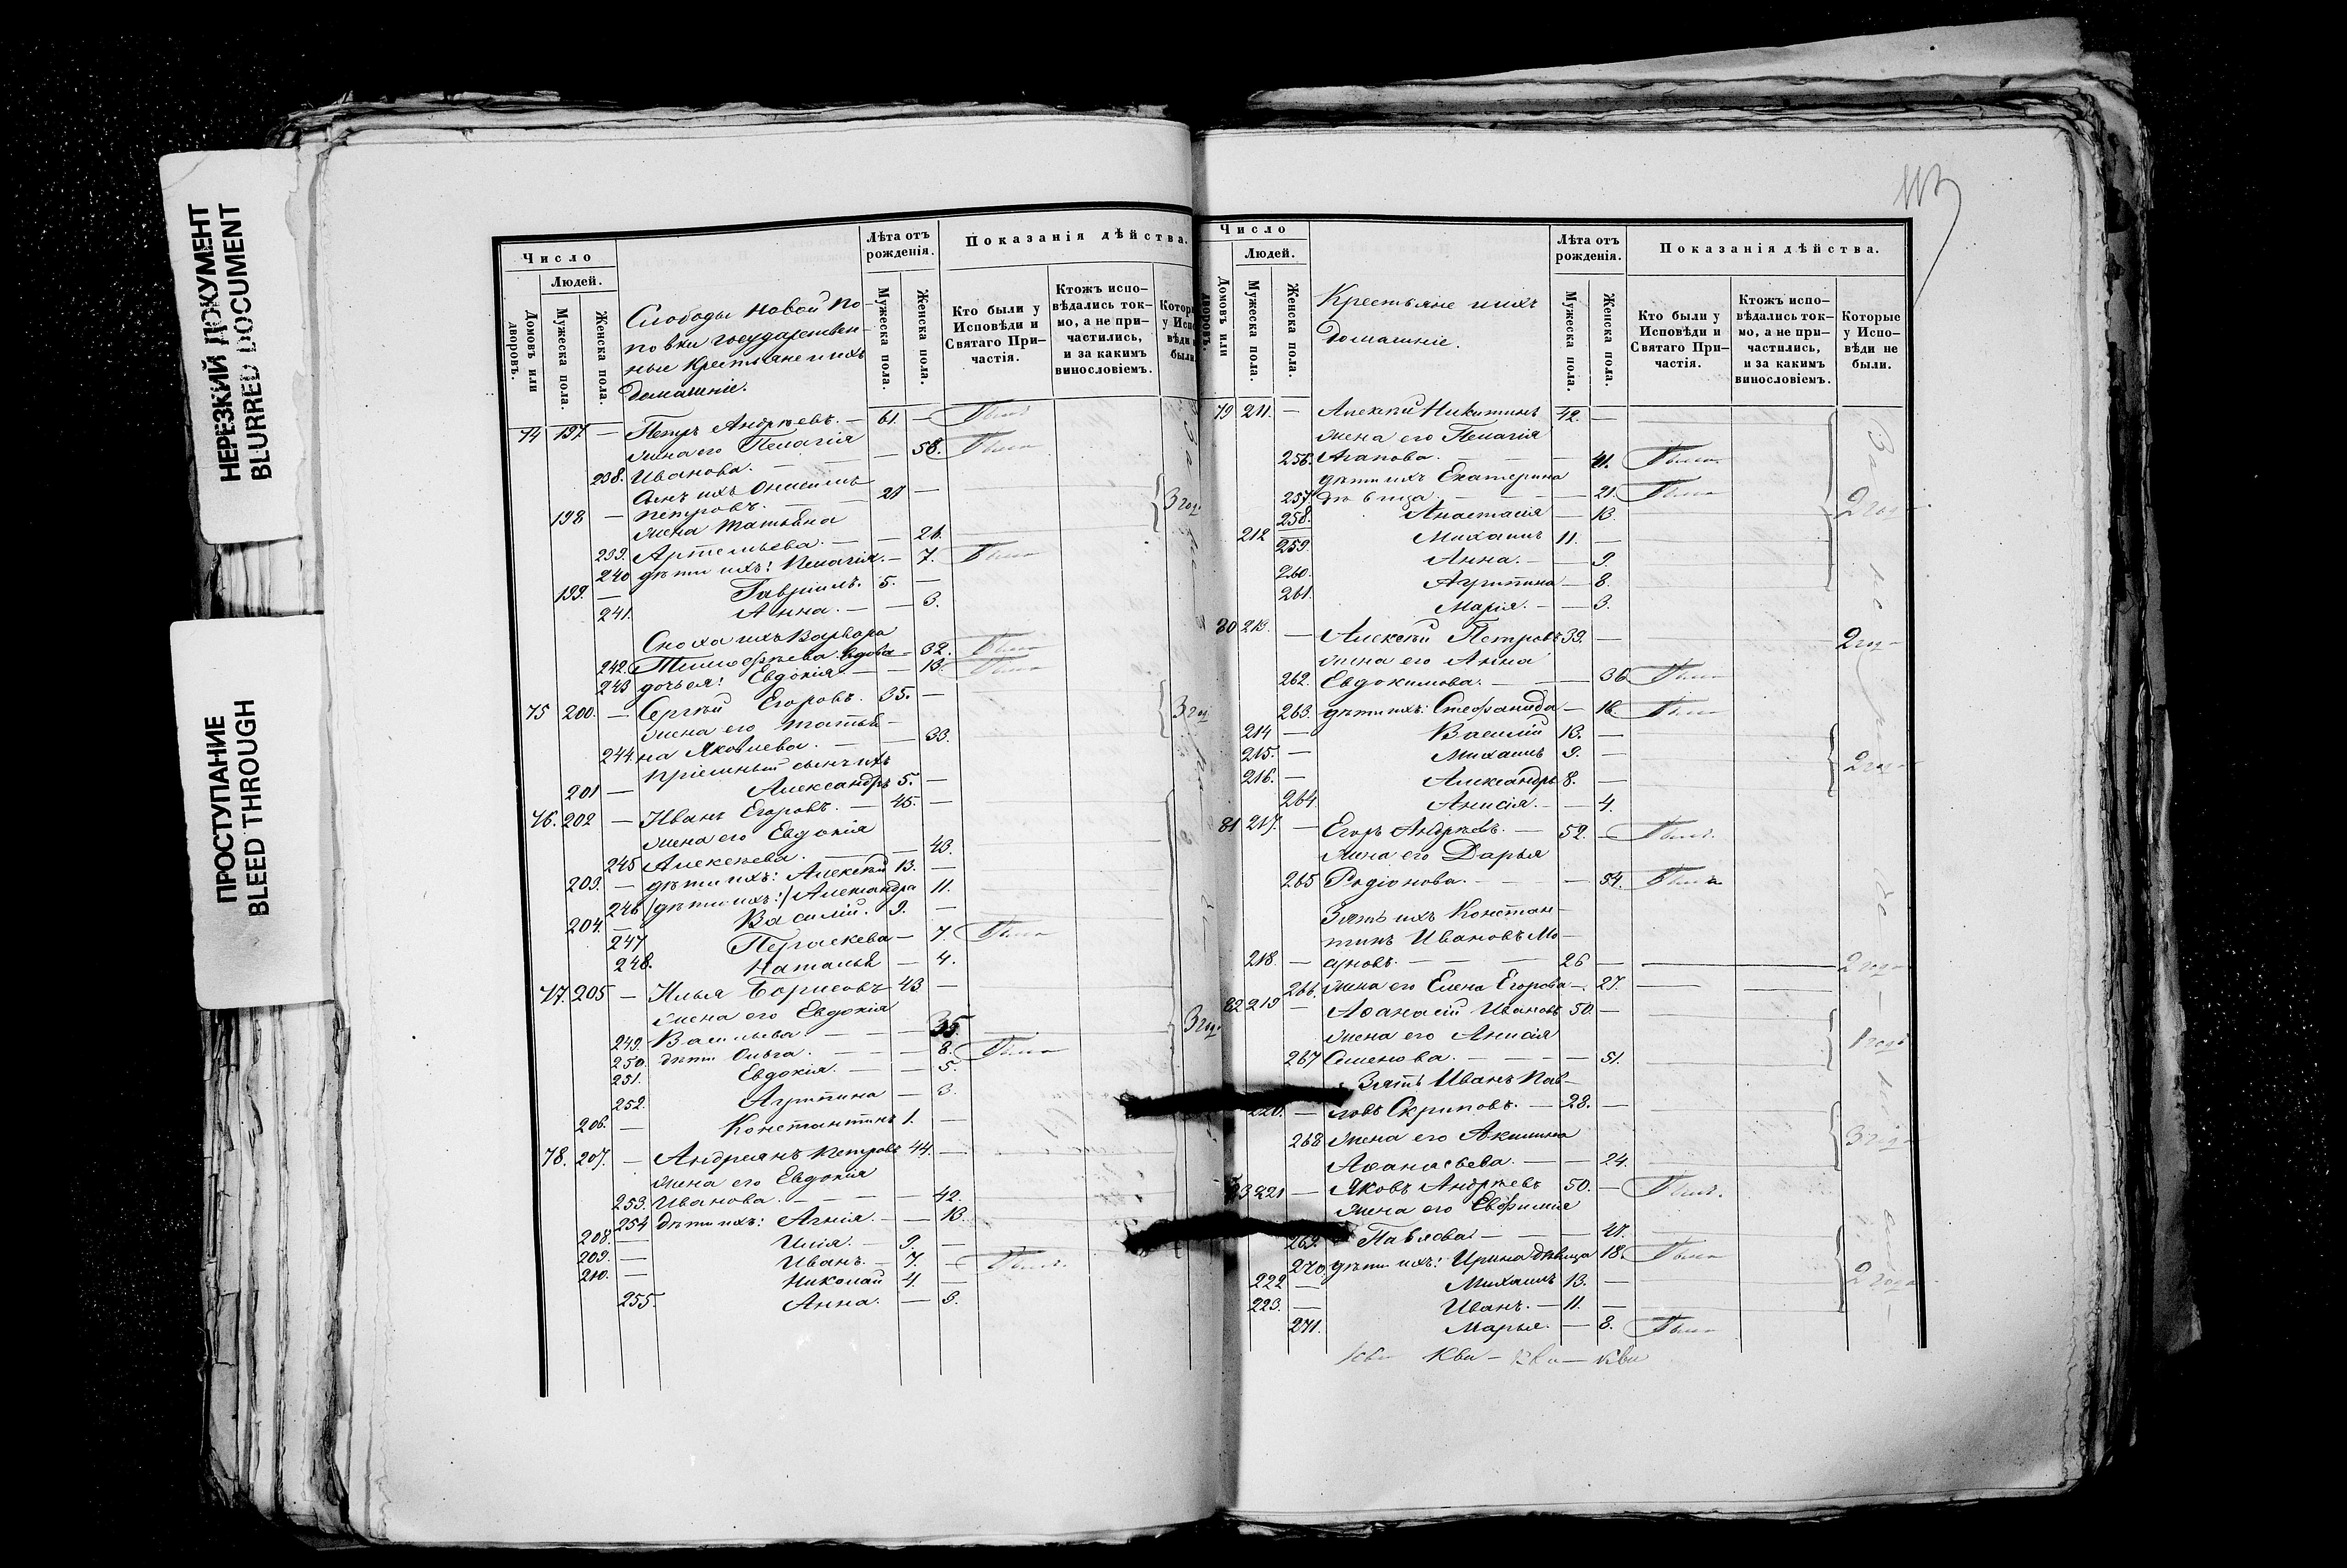 НЕРЕЗКИЙ ДОКУМЕНТ
BLURRED DOCUMENT
ПРОСТУПАНИЕ
BLEED THROUGH
Число
Людей.
Домовъ или дворовъ.
Мужеска пола.
Женска пола.
Слободы Новой По-
повки государствен-
ные Крестьяне и ихъ
домашніе.
Лѣта отъ рожденія.
Мужеска пола.
Женска пола.
Показанія дѣйства.
Кто были у Исповѣди и Святаго При-частія.
Ктожъ испо-вѣдались ток-мо, а не при-частились, и за какимъ винословіемъ.
74 197. — Петръ Андрѣевъ. — 61. — Былъ
жена его Пелагія
238. Иванова. — — 58. Была
Сынъ ихъ Онисимъ
198 — Петровъ. — 28 — 3 год.
жена Татьяна
239. Артемьева. — — 26.
240 дѣти ихъ: Пелагія. — 7. Была
199. — Гавріилъ. 5. —
241. Анна. — — 3.
Сноха ихъ Варвара
242. Тимофѣева вдова — 32. Была
243 дочь ея: Евдокія — 13. Была
75 200. — Сергѣй Егоровъ. 35. — 3 год
жена его Татья-
244. на Яковлева. — — 33.
Пріемный сынъ ихъ
201 — Александръ 5. —
76. 202 — Иванъ Егоровъ. — 45. —
жена его Евдокія
245 Алексѣева. — — 43.
203. — дѣти ихъ: Алексѣй 13. —
246 /дѣти ихъ:/ Александра 11.
204. — Василій. 9. —
247 Параскева — 7. Была
248. Наталья — 4.
77. 205 — Илья Борисовъ 43. —
жена его Евдокія
249. Васильева — — 35. 3 год
250. дѣти Ольга. — — 8. Была
251. Евдокія. — — 5.
252. Агрипина — 3.
206. — Константинъ 1. —
78. 207. — Андреянъ Петровъ 44. —
жена его Евдокія
253. Иванова. — — 42.
254 дѣти ихъ: Агнія. — — 13.
208. — Илія. — 9. —
209. — Иванъ. — 7. — Былъ.
210. — Николай 4. —
255. Анна. — 3.
113
Число
Людей.
Домовъ или дворовъ.
Мужеска пола.
Женска пола.
Крестьяне и ихъ
домашніе.
Лѣта отъ рожденія.
Мужеска пола.
Женска пола.
Показанія дѣйства.
Кто были у Исповѣди и Святаго При-частія.
Ктожъ испо-вѣдались ток-мо, а не при-частились, и за какимъ винословіемъ.
Которые у Испо-вѣди не были.
79 211. — Алексѣй Никитинъ 42. —
жена его Пелагія
256. Агапова. — — 41. Была
дѣти ихъ Екатерина
257. дѣвица. — — 21. Была
258. Анастасія — 13. 2 год
212 Михаилъ 11. —
259. Анна. — — 9.
260. Агрипина — 8.
261. Марія. — — 3.
80 213. — Алексѣй Петровъ 39. — 2 год
жена его Анна
262. Евдокимова. — — 36 Была
263. дѣти ихъ: Стефанида — 16. Была
214 — Василій 13. —
215. — Михаилъ 9. — 2 год
216. — Александръ 8. —
264. Анисія. — — 4.
81 217. — Егоръ Андрѣевъ. — 52. — Былъ.
жена его Дарья
265 Родіонова. — — 54. Была
Зять ихъ Констан-
тинъ Ивановъ Мо-
218. — — — 26 — 2 год
266. жена его Елена Егорова — 27.
82 219 — Аѳанасій Ивановъ 50. —
жена его Анисія 1 годъ
267 Семенова. — — 51.
Зять Иванъ Пав-
220. — ловъ Скриповъ. — 28. —
268 жена его Акилина 3 год
Аѳанасьева. — — 24.
83 221 — Яковъ Андрѣевъ 50. — Былъ.
жена его Евфимія
269. Павлова — — 48.
270. дѣти ихъ: Ирина дѣвица 18. Была
222 — Михаилъ 13. — 2 года
223. — Иванъ. — 11. —
271. Марья. — 8. Была